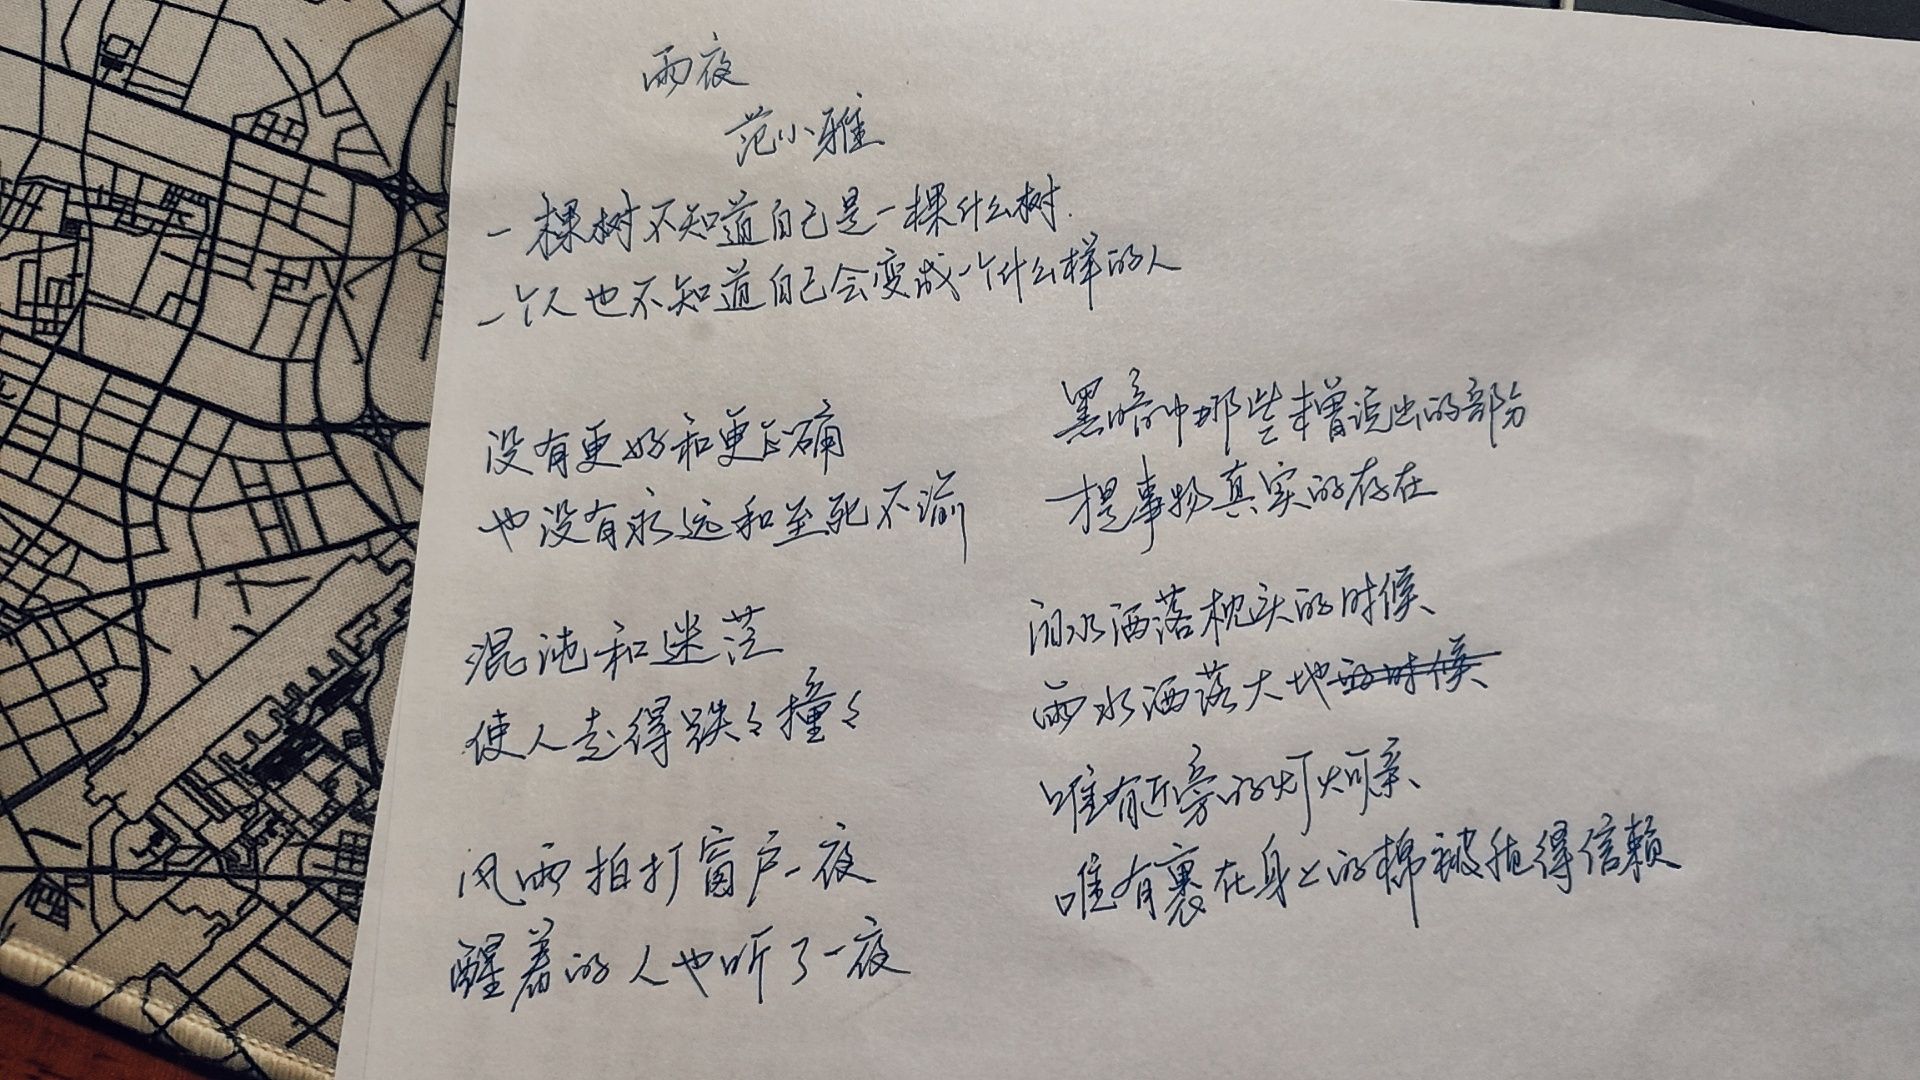 雨夜
范小雅
一棵树不知道自己是一棵什么树
一个人也不知道自己会变成一个什么样的人
没有更好和更正确
也没有永远和至死不渝
混沌和迷茫
使人走得跌々撞々
风雨拍打窗户一夜
醒着的人也听了一夜
黑暗中那些未曾说出的部分
才是事物真实的存在
泪水洒落枕头的时候
雨水洒落大地的时候
唯有近旁的灯火可亲
唯有裹在身上的棉被值得信赖